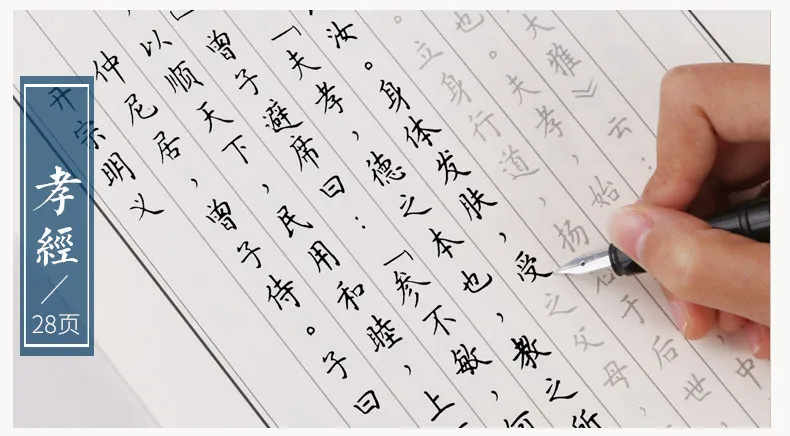 孝經
28页
开宗明义
仲尼居，曾子侍。子曰
以顺天下，民用和睦，上
曾子避席曰：「参不敏，何
「夫孝，德之本也，教之所
汝。身体发肤，受之父母，
。立身行道，扬名于后世，
也。夫孝，始中
大雅》云：